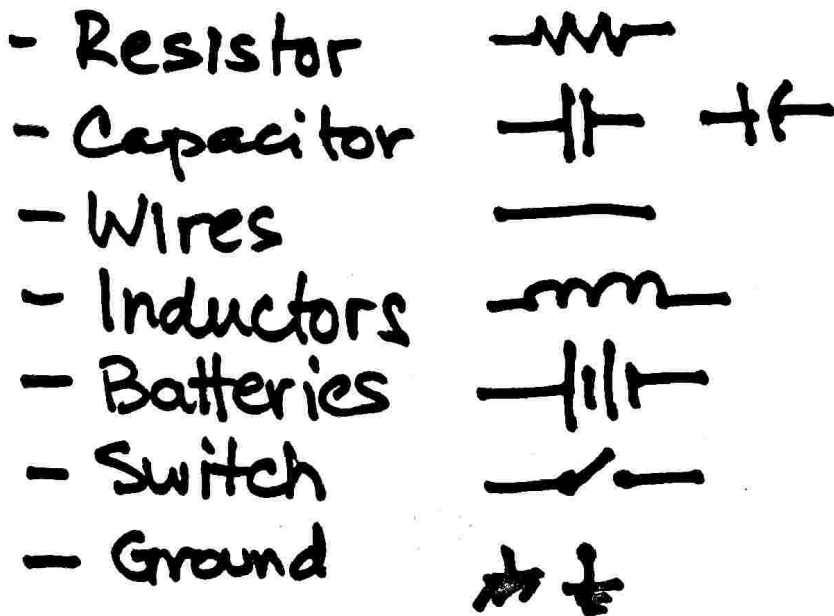 - Resistor
- Capacitor
- Wires
- Inductors
- Batteries
- Switch
- Ground